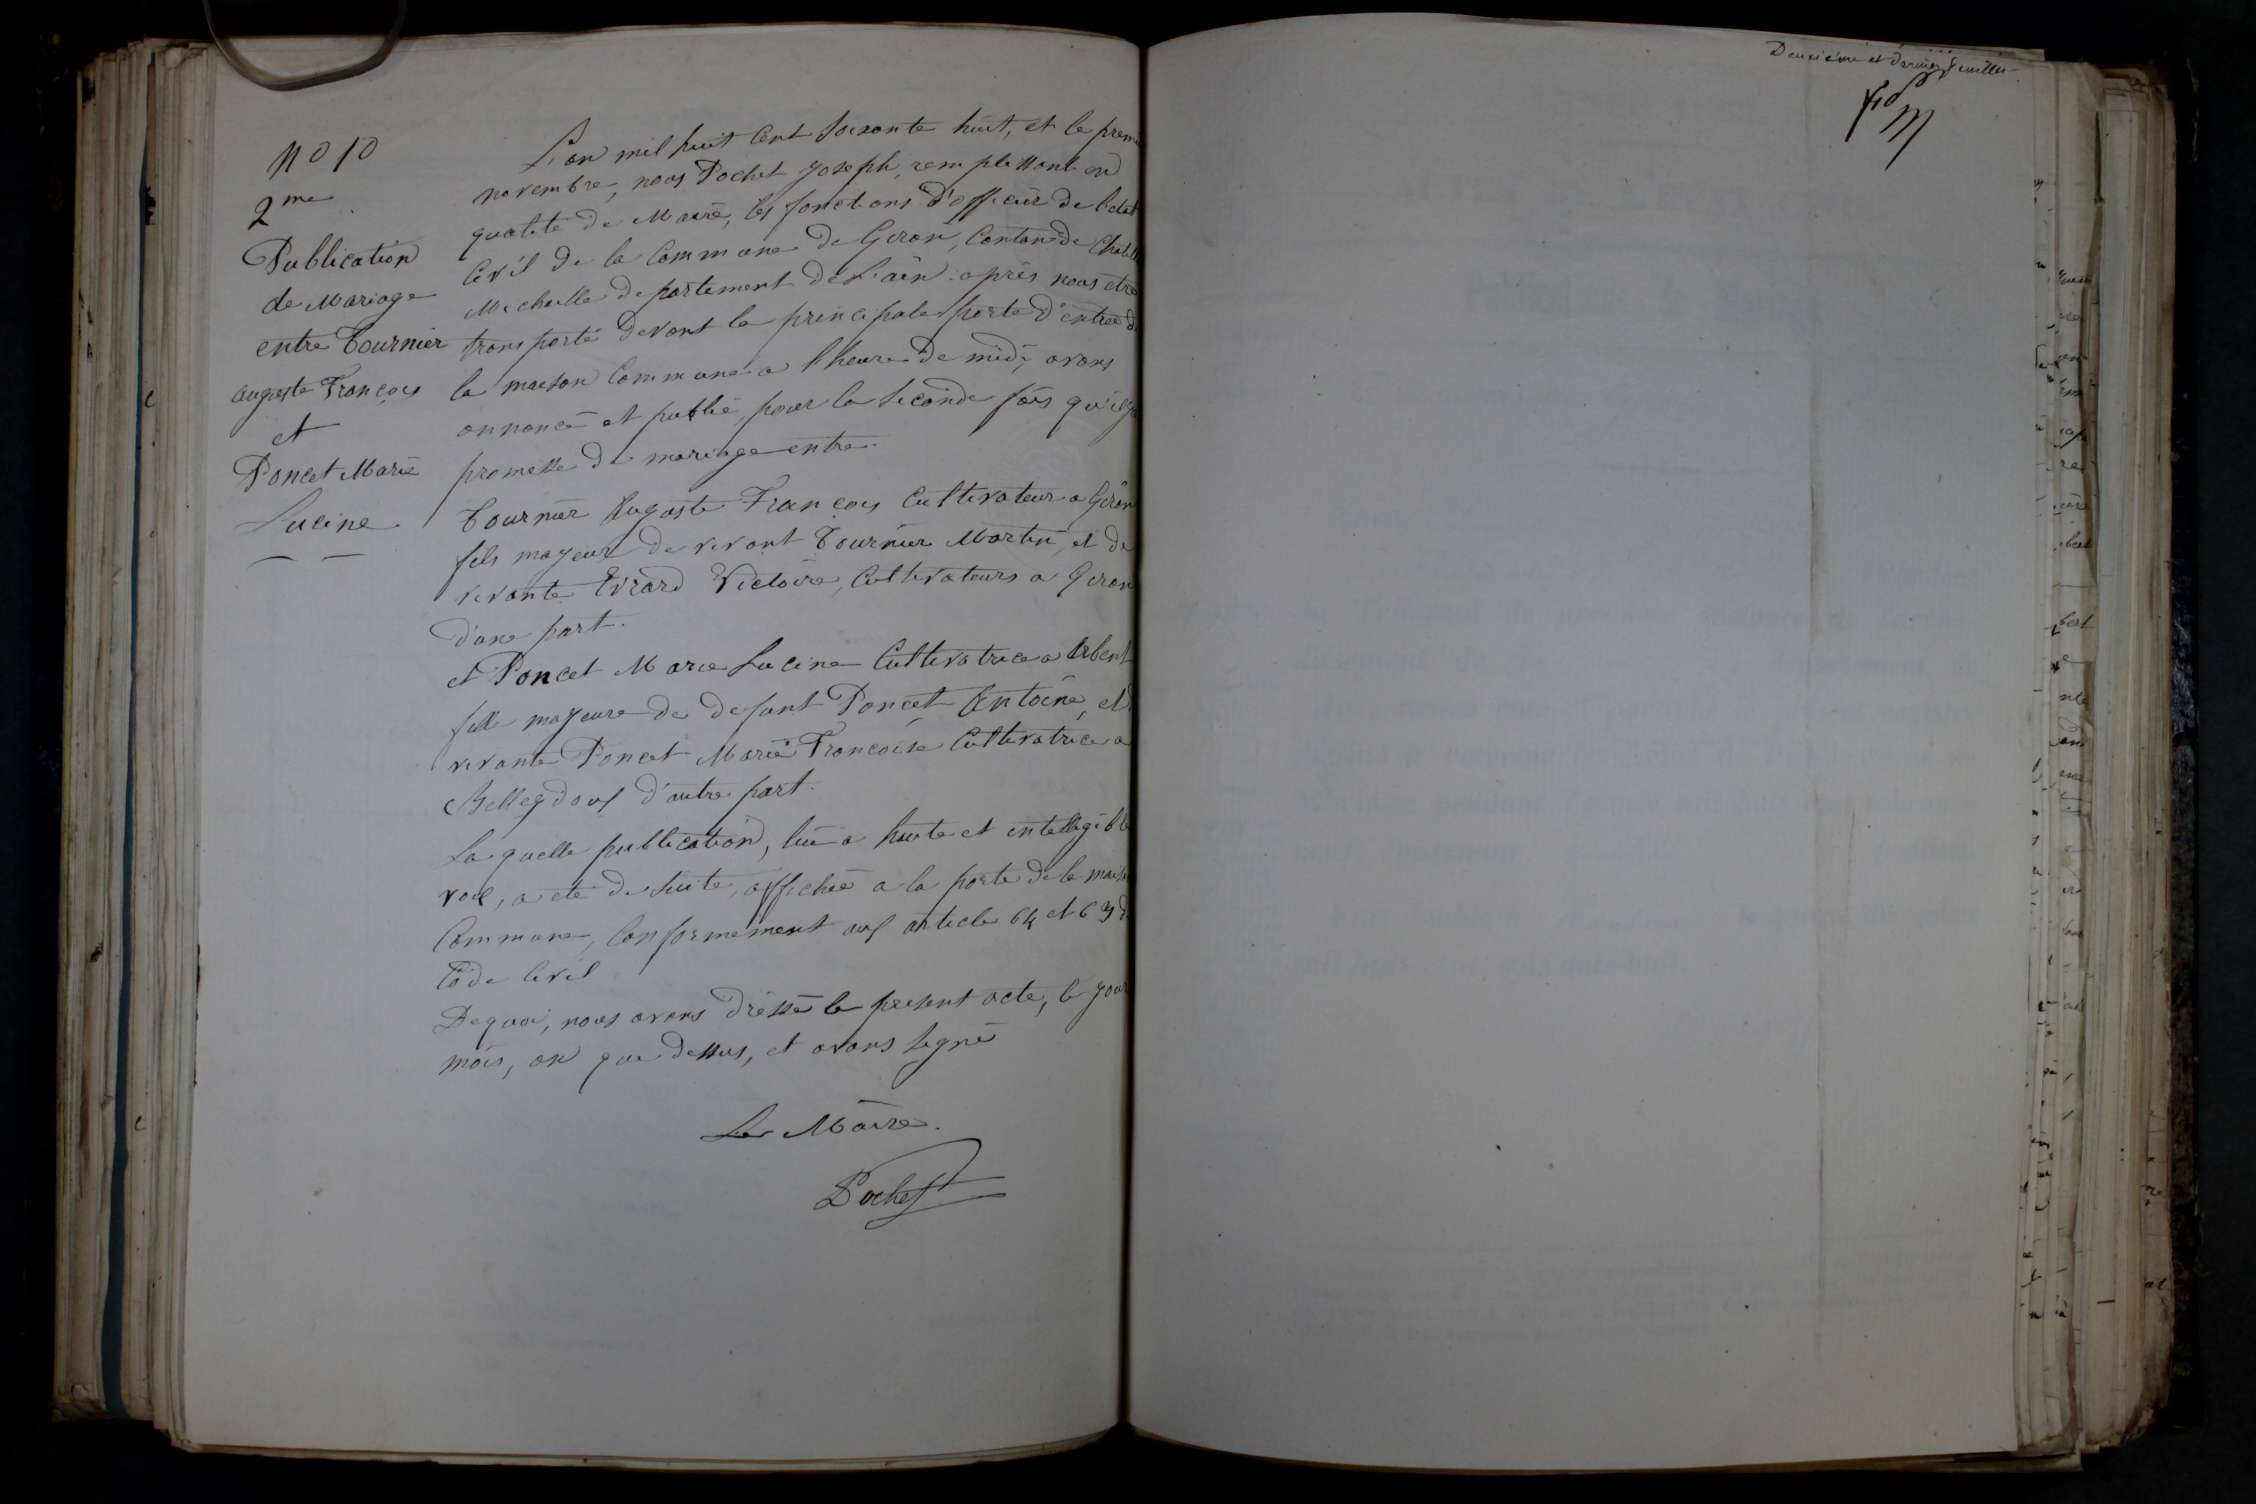 No 10
2me
Publication
de Mariage
entre Tournier
Auguste François
et
Poncet Marie
Lucine
L'an mil huit Cent Soixante huit, et le prem
novembre, nous Pochet Joseph, remplissant en
qualité de Maire, les fonctions d'officier de l'état
Civil de la Commune de Giron, Canton de Chatill
Michaille departement de L'ain. après nous etre
transporté devant la principale porte d'entrée d
la maison Commune a l'heure de midi, avons
annoncé et publié, pour la Seconde fois qu'il y a
promesse de mariage entre.
Tournier Auguste François Cultivateur a Giron
fils majeur de vivant Tournier Martin, et de
vivante Evrard Victoire, Cultivateurs a Giron
d'une part.
et Poncet Marie Lucine Cultivatrice a Arbent
fille majeure de defunt Poncet Antoine, et
vivante Poncet Marie Françoise Cultivatrice a
Belleydoux d'autre part.
La quelle publication, lue a haute et intelligible
voix, a eté de Suite, affichée a la porte de la maiso
Commune, Conformement aux article 64 et 63 d
Code Civil
De quoi, nous avons dressé le present acte, le jour
mois, an que dessus, et avons Signé
Le Maire.
Pochet
Deuxième et dernier feuillet